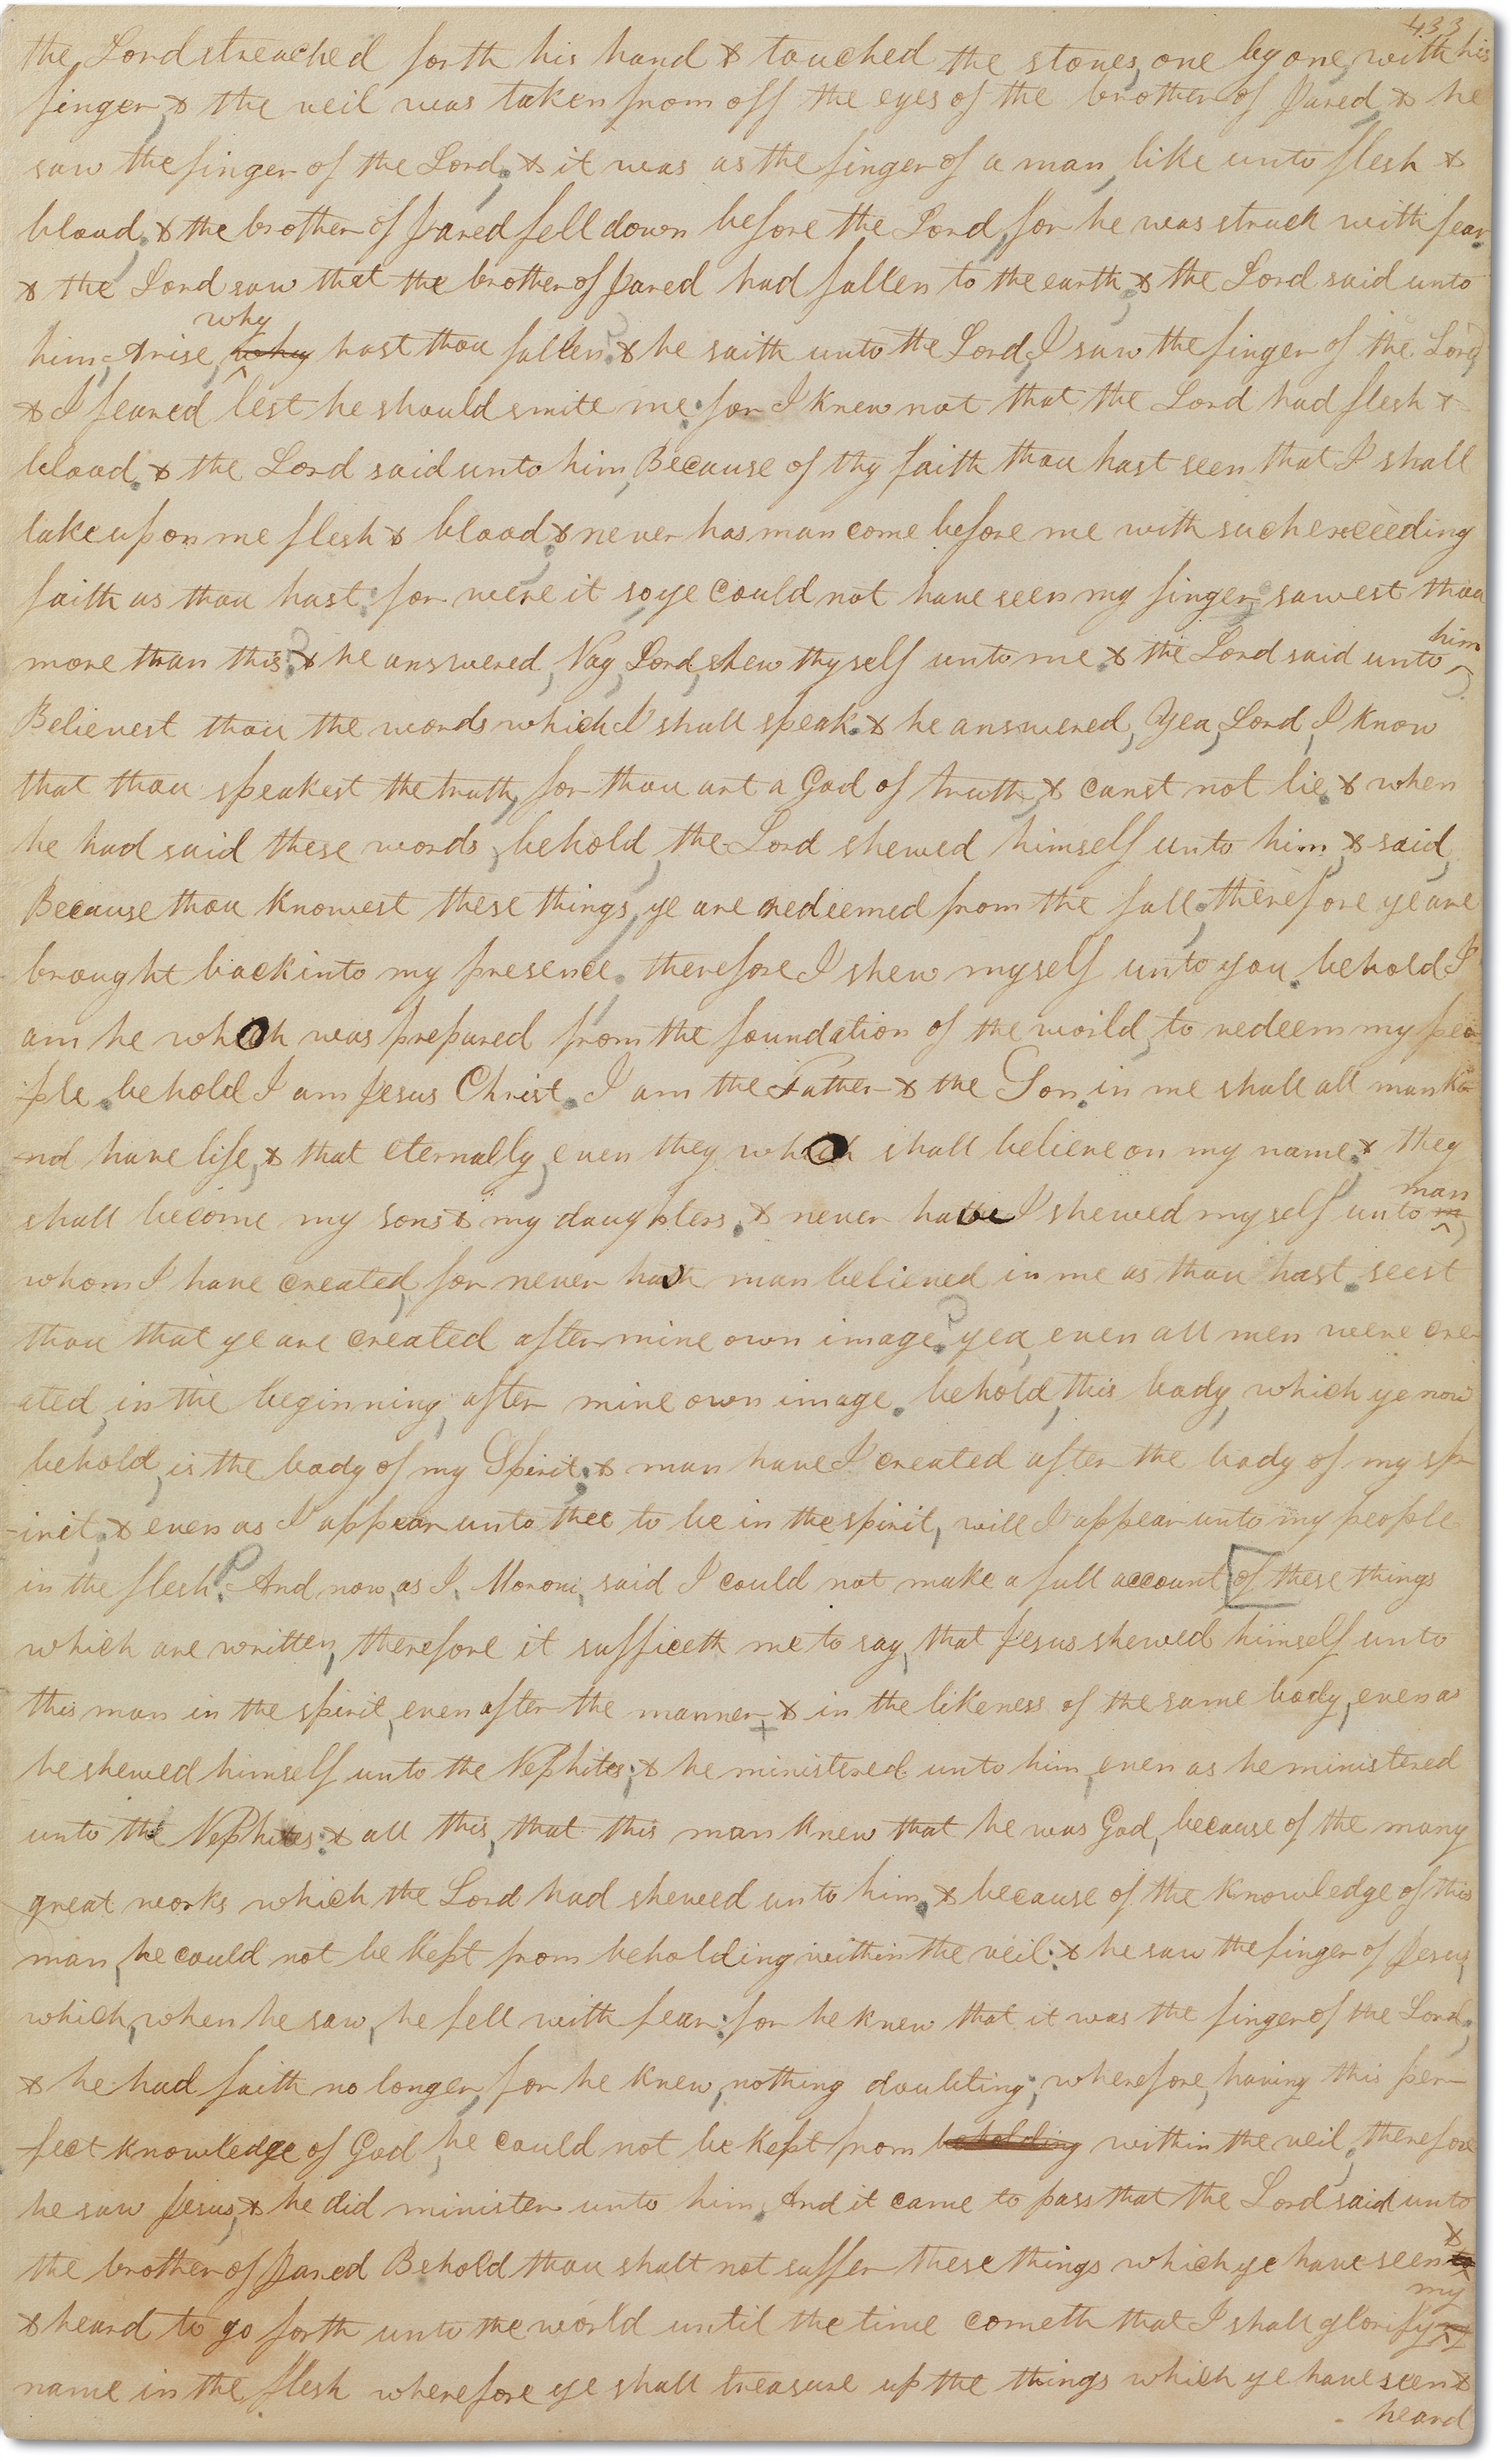 433
the Lord streached forth his hand & touched the stones, one by one, with his
finger, & the veil was taken from off the eyes of the brother of Jared, & he
saw the finger of the Lord; & it was as the finger of a man, like unto flesh &
blood; & the brother of Jared fell down before the Lord, for he was struck with fear.
& the Lord saw that the brother of Jared had fallen to the earth; & the Lord said unto
why
him, Arise, why hast thou fallen? & he saith unto the Lord, I saw the finger of the Lord,
& I feared lest he should smite me: for I knew not that the Lord had flesh &
blood. & the Lord said unto him, Because of thy faith thou hast seen that I shall
take upon me flesh & blood; & never has man come before me with such exceeding
faith as thou hast: for were it so ye could not have seen my finger. sawest thou
him
more than this? & he answered, Nay, Lord, shew thyself unto me. & the Lord said unto
Believest thou the words which I shall speak. & he answered, Yea, Lord, I know
that thou speakest the truth, for thou art a God of truth, & canst not lie. & when
he had said these words, behold, the Lord shewed himself unto him, & said,
Because thou knowest these things, ye are redeemed from the fall; therefore ye are
brought back into my presence; therefore I shew myself unto you. behold I
am he which was prepared from the foundation of the world, to redeem my peo
ple. behold I am Jesus Christ. I am the Father & the Son. in me shall all manki
nd have life, & that eternally, even they which shall believe on my name; & they
man
shall become my sons & my daughters. & never have I shewed myself unto m
whom I have created, for never hath man believed in me as thou hast. seest
thou that ye are created after mine own image? yea, even all men were cre
ated, in the beginning, after mine own image. behold, this body, which ye now
behold, is the body of my Spirit; & man have I created after the body of my sp
-irit; & even as I appear unto thee to be in the spirit, will I appear unto my people
in the flesh. And now, as I, Moroni, said I could not make a full account of these things
which are written, therefore it sufficeth me to say, that Jesus shewed himself unto
this man in the spirit, even after the manner, & in the likeness of the same body, even as
he shewed himself unto the Nephites; & he ministered unto him, even as he ministered
unto the Nephites: & all this, that this man knew that he was God, because of the many
great works which the Lord had shewed unto him. & because of the knowledge of this
man, he could not be kept from beholding within the veil: & he saw the finger of Jesus,
which, when he saw, he fell with fear: for he knew that it was the finger of the Lord;
& he had faith no longer, for he knew, nothing doubting; wherefore, having this per
fect knowledge of God, he could not be kept from beholding within the veil; therefore
he saw Jesus, & he did minister unto him. And it came to pass that the Lord said unto
&
the brother of Jared Behold thou shalt not suffer these things which ye have seen
my
& heard to go forth unto the world until the time cometh that I shall glorify my
name in the flesh wherefore ye shall treasure up the things which ye have seen &
heard